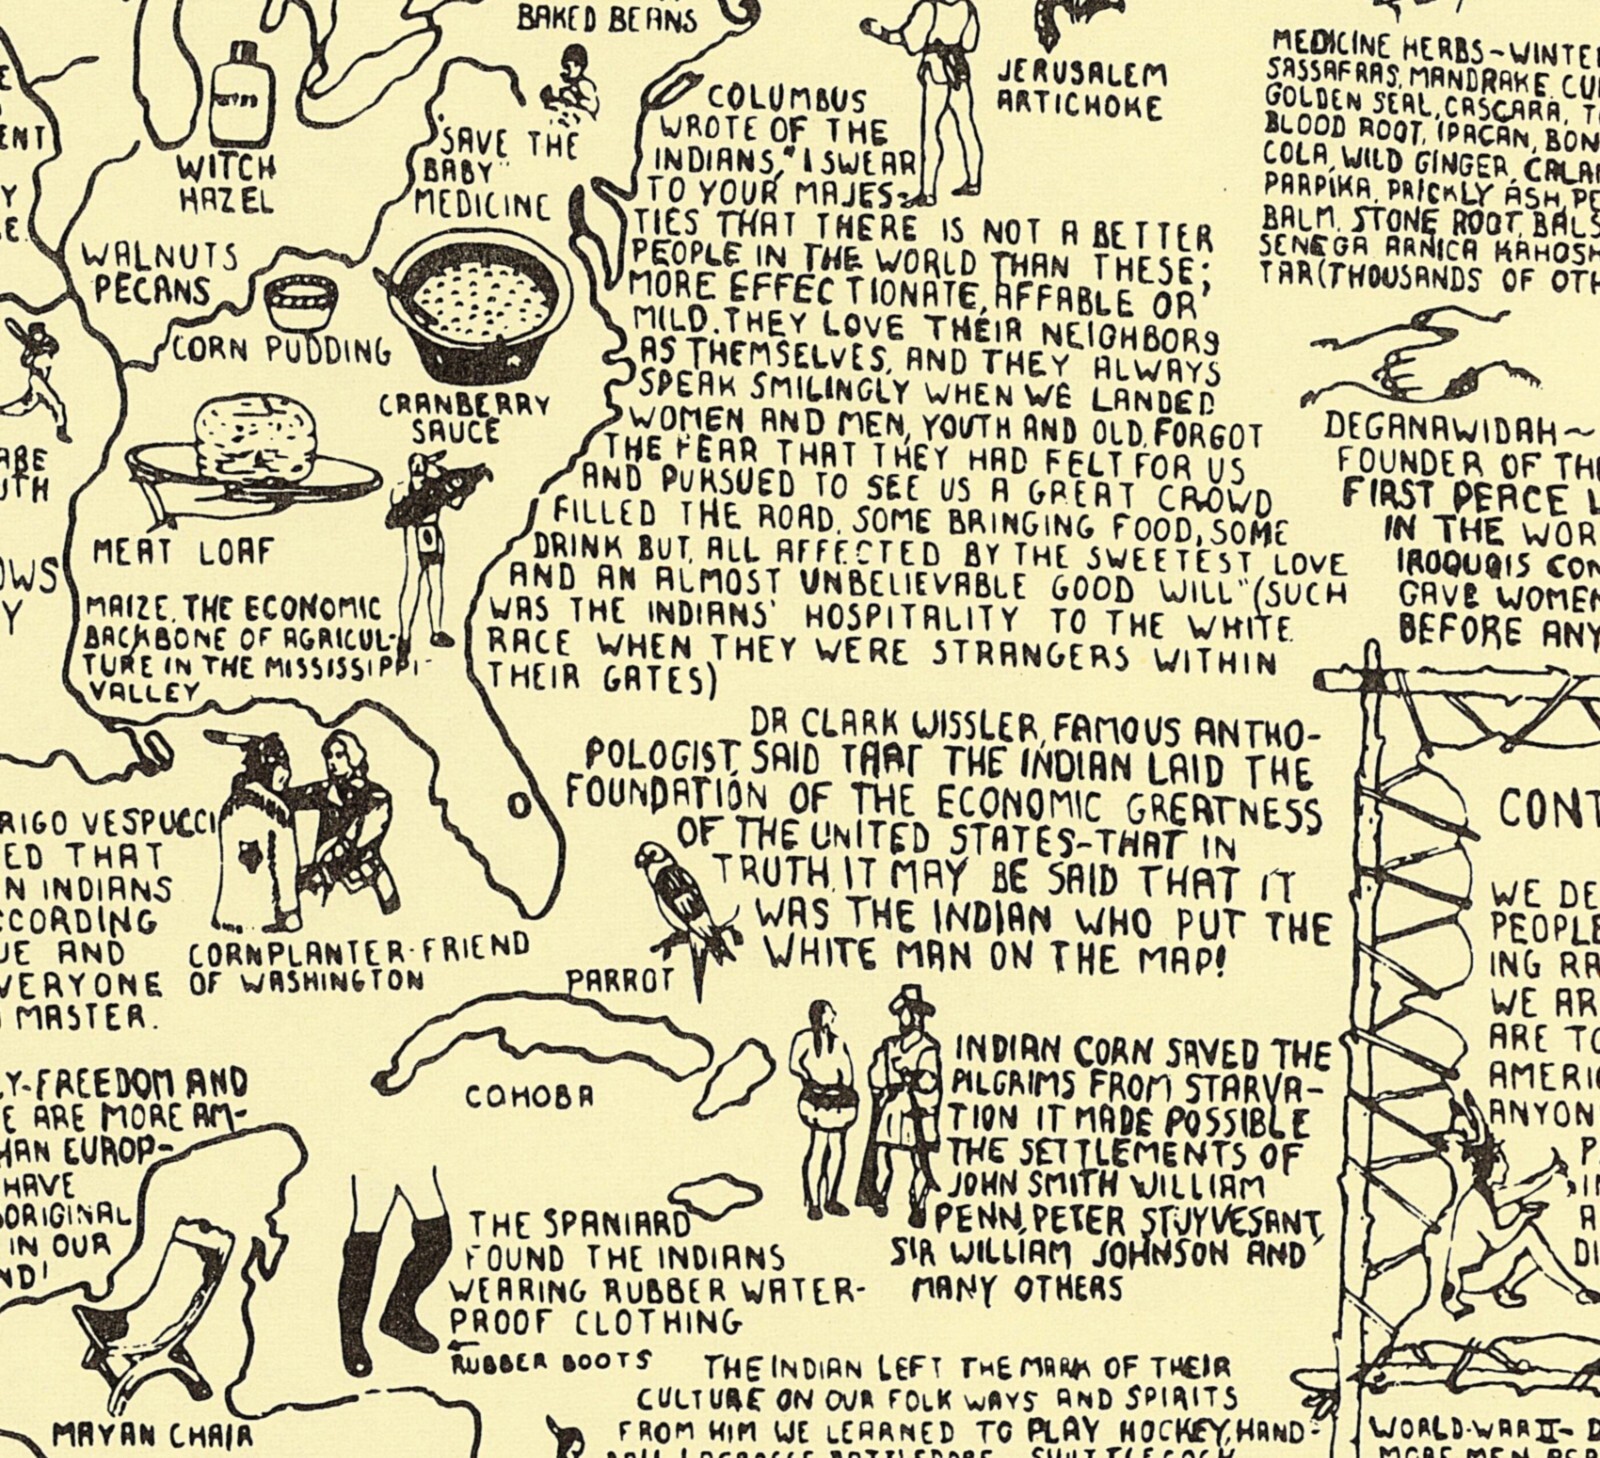 BAKED BEANS
JERUSALEM
ARTICHOKE
WITCH
HAZEL
"SAVE THE
BABY"
MEDICINE
WALNUTS
PECANS
CORN PUDDING
CRANBERRY
SAUCE
MEAT LOAF
MAIZE, THE ECONOMIC
BACKBONE OF AGRICUL-
TURE IN THE MISSISSIPPI-
VALLEY
COLUMBUS
WROTE OF THE
INDIANS, "I SWEAR
TO YOUR MAJES-
TIES THAT THERE IS NOT A BETTER
PEOPLE IN THE WORLD THAN THESE;
MORE EFFECTIONATE, AFFABLE OR
MILD. THEY LOVE THEIR NEIGHBORS
AS THEMSELVES, AND THEY ALWAYS
SPEAK SMILINGLY WHEN WE LANDED
WOMEN AND MEN, YOUTH AND OLD, FORGOT
THE FEAR THAT THEY HAD FELT FOR US
AND PURSUED TO SEE US A GREAT CROWD
FILLED THE ROAD, SOME BRINGING FOOD, SOME
DRINK BUT, ALL AFFECTED BY THE SWEETEST LOVE
AND AN ALMOST UNBELIEVABLE GOOD WILL" (SUCH
WAS THE INDIANS' HOSPITALITY TO THE WHITE
RACE WHEN THEY WERE STRANGERS WITHIN
THEIR GATES)
MEDICINE HERBS~WINTE
SASSAFRAS, MANDRAKE, CU
GOLDEN SEAL, CASCARA, T
BLOOD ROOT, IPACAN, BON
COLA, WILD GINGER, CALA
PARPIKA, PRICKLY ASH, PE
BALM, STONE ROOT, BALS
SENEGA ARNICA KAHOSH
TAR(THOUSANDS OF OTH
DEGANAWIDAH~
FOUNDER OF TH
FIRST PEACE L
IN THE WOR
IROQUOIS CON
GAVE WOMEN
BEFORE ANY
DR CLARK WISSLER, FAMOUS ANTHO-
POLOGIST, SAID THAT THE INDIAN LAID THE
FOUNDATION OF THE ECONOMIC GREATNESS
OF THE UNITED STATES-THAT IN
TRUTH IT MAY BE SAID THAT IT
WAS THE INDIAN WHO PUT THE
WHITE MAN ON THE MAP!
RIGO VESPUCCI
ED THAT
N INDIANS
CCORDING
UE AND
VERYONE
MASTER.
CORNPLANTER-FRIEND
OF WASHINGTON
PARROT
COHOBA
Y-FREEDOM AND
E ARE MORE AM-
HAN EUROP-
HAVE
ORIGINAL
IN OUR
ND!
INDIAN CORN SAVED THE
PILGRIMS FROM STARVA-
TION IT MADE POSSIBLE
THE SETTLEMENTS OF
JOHN SMITH WILLIAM
PENN, PETER STUYVESANT,
SIR WILLIAM JOHNSON AND
MANY OTHERS
THE SPANIARD
FOUND THE INDIANS
WEARING RUBBER WATER-
PROOF CLOTHING
RUBBER BOOTS
MAYAN CHAIR
THE INDIAN LEFT THE MARK OF THEIR
CULTURE ON OUR FOLK WAYS AND SPIRITS
FROM HIM WE LEARNED TO PLAY HOCKEY, HAND-
CONT
WE DE
PEOPLE
ING RA
WE AR
ARE TO
AMERI
ANYON
WORLD-WAR II- D